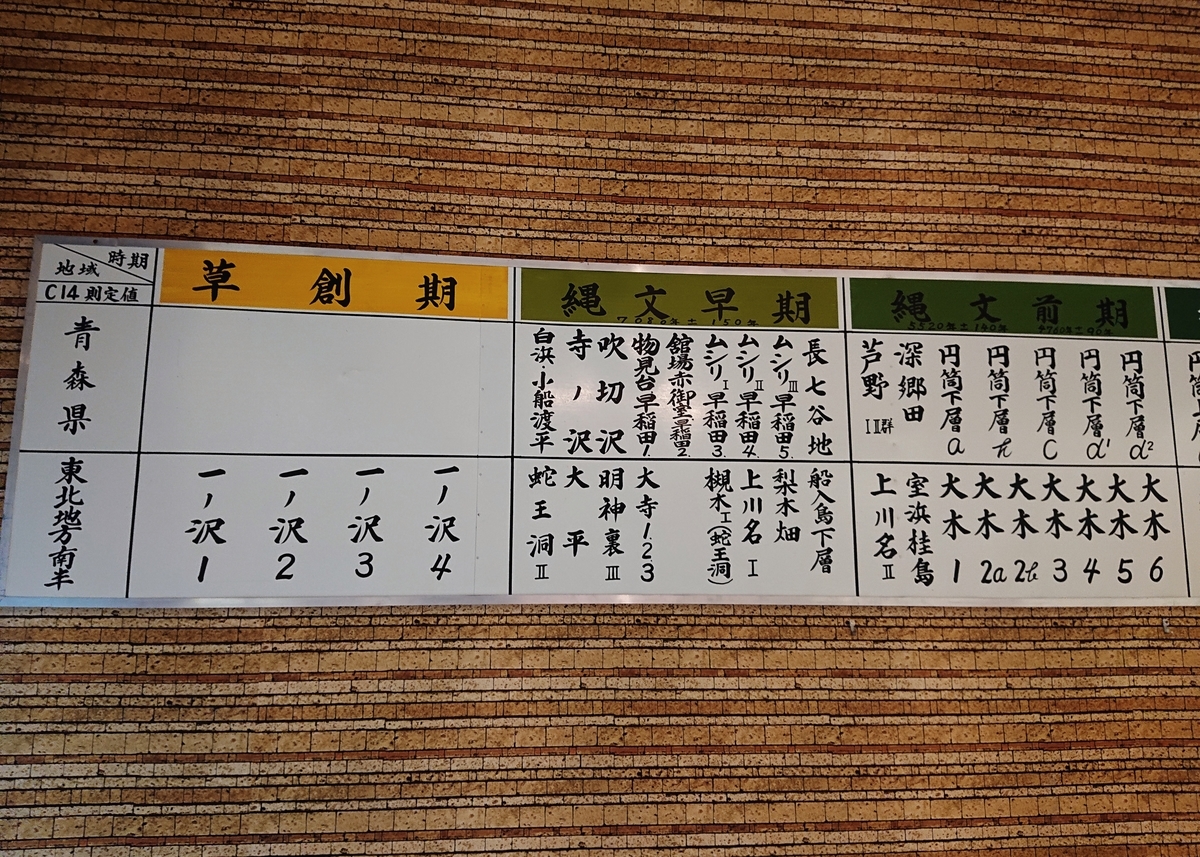 時期
地域
C14則定値
草創期
縄文早期
7080年±150年
縄文前期
5520年±140年 4760年±90年
青森県
白浜・小船渡平
寺ノ沢
吹切沢
物見台早稲田1.
舘場赤御堂早稲田2.
ムシリI早稲田3.
ムシリII早稲田4.
ムシリIII早稲田5.
長七谷地
芦野III群
深郷田
円筒下層a
円筒下層b
円筒下層C
円筒下層d¹
円筒下層d²
東北地方南半
一ノ沢1
一ノ沢2
一ノ沢3
一ノ沢4
蛇王洞II
大平
明神裏III
大寺123
槻木I(蛇王洞)
上川名I
梨木畑
船入島下層
上川名II
室浜桂島
大木1
大木2a
大木2b
大木3
大木4
大木5
大木6